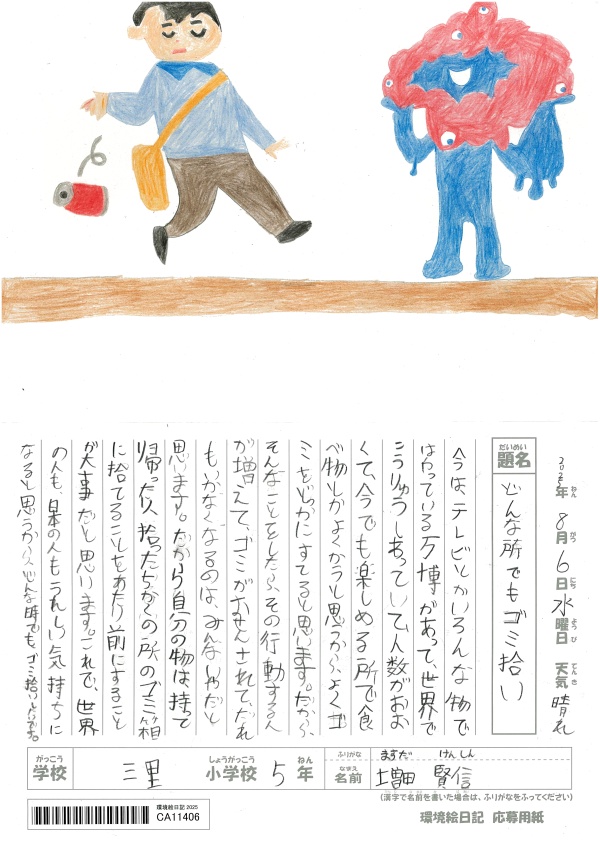 2025年 8月 6日 水曜日 天気 晴れ
ねん がつ にち ようび てんき
だいめい
題名 どんな所でもゴミ拾い
今は、テレビとかいろんな物で
はやっている万博があって、世界で
こうりゅうしあっていて人数がおお
くて、今でも楽しめる所で食
べ物とかよくかうと思うから、よくゴ
ミをどっかにすてると思います。だから、
そんなことをしたら、その行動する人
が増えて、ゴミがおおくされて、だれ
もいかなくなるのは、みんないやだと
思います。だから自分の物は、持って
帰ったり、拾ったらちかくの所のゴミ箱
に捨てることをあたり前にすること
が大事だと思います。これで、世界
の人も、日本の人もうれしい気持ちに
なると思うから、どんな時でも、ゴミ拾いしたいです。
がっこう しょうがっこう ねん ふりがな ますだ けんしん
学校 三里 小学校 5年 なまえ 名前 増田 賢信
(漢字で名前を書いた場合は、ふりがなをふってください)
環境絵日記 2025
CA11406
環境絵日記 応募用紙